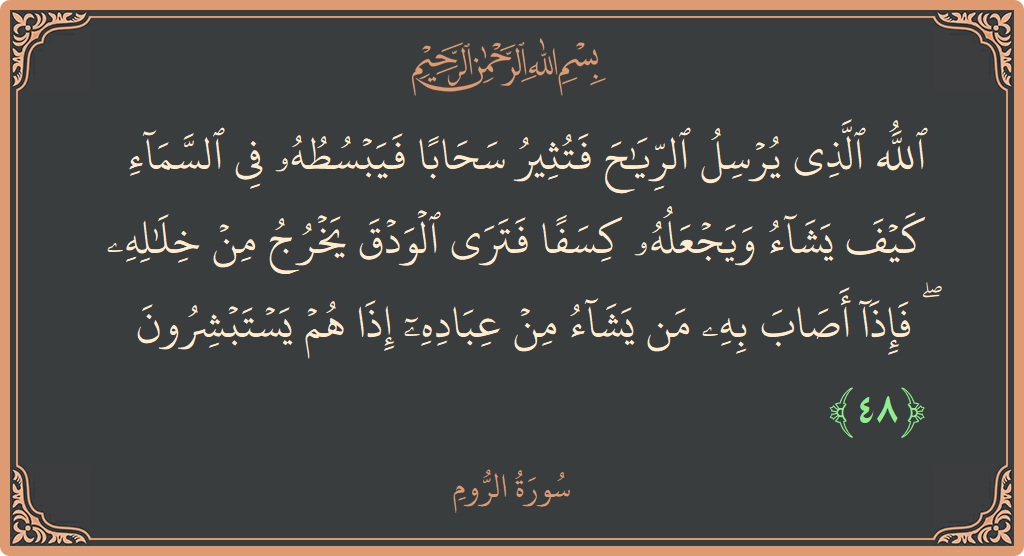 بِسْمِ اللهِ الرَّحْمٰنِ الرَّحِيْمِ
ٱللَّهُ ٱلَّذِى يُرْسِلُ ٱلرِّيَـٰحَ فَتُثِيرُ سَحَابًا فَيَبْسُطُهُۥ فِى ٱلسَّمَآءِ
كَيْفَ يَشَآءُ وَيَجْعَلُهُۥ كِسَفًا فَتَرَى ٱلْوَدْقَ يَخْرُجُ مِنْ خِلَـٰلِهِۦ
ۖ فَإِذَآ أَصَابَ بِهِۦ مَن يَشَآءُ مِنْ عِبَادِهِۦٓ إِذَا هُمْ يَسْتَبْشِرُونَ
﴿٤٨﴾
سُورَةُ الرُّومِ